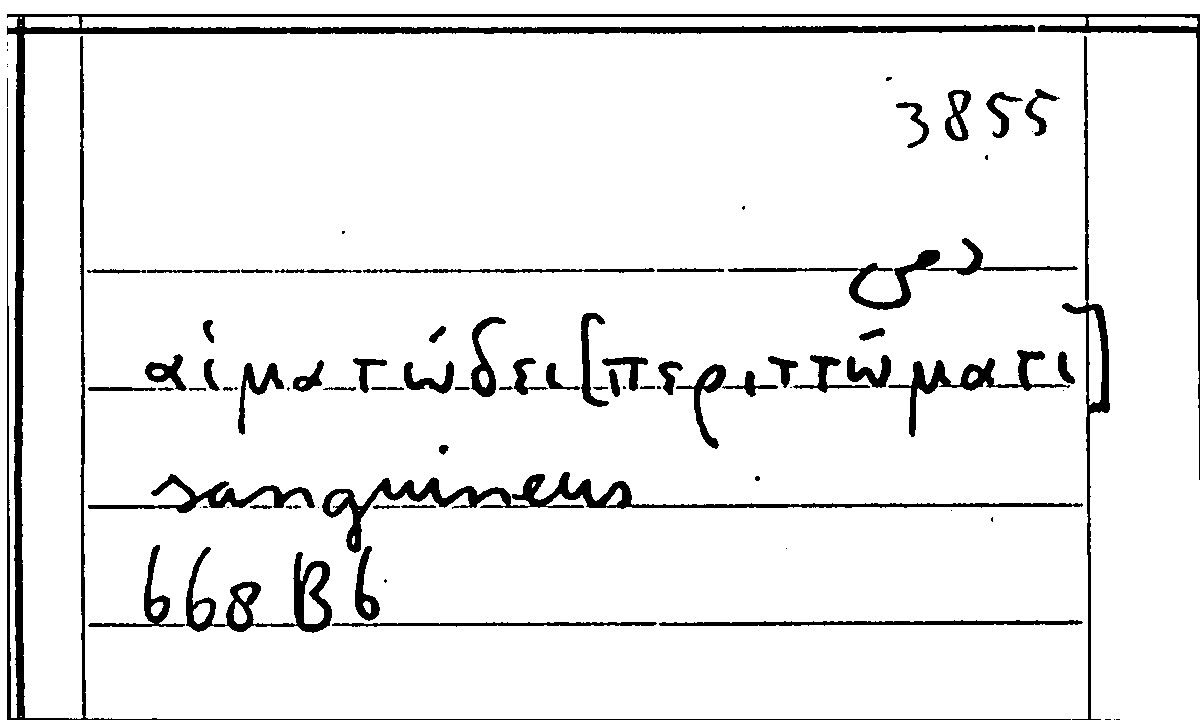 3855
αἱματώδει [περιττώματι]
sanguineus
668 B 6